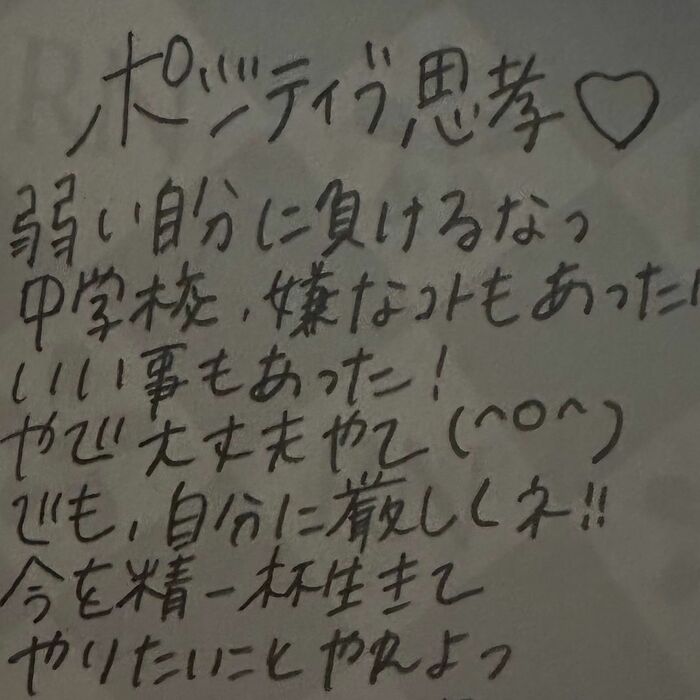 ポジティブ思考♡
弱い自分に負けるなっ
中学校、嫌なコトもあった!
いい事もあった!
やで大丈夫やて(^O^)
でも、自分に厳しくネ!!
今を精一杯生きて
やりたいことやれよっ